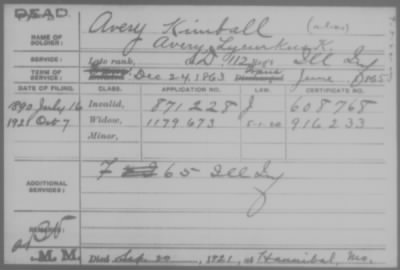 DEAD
NAME OF SOLDIER: Avery Kimball (alias)
Avery, Lycurkus K.
SERVICE: Late rank, D 112 Reg't Ill Inf
TERM OF SERVICE: Dec 24, 1863 June 1865
DATE OF FILING. CLASS. APPLICATION NO. LAW. CERTIFICATE NO.
1890 July 16 Invalid, 871228 J 608768
1921 Oct 7 Widow, 1179673 5-1-20 916233
Minor,
ADDITIONAL SERVICES: F 65 Ill Inf
REMARKS:
M. M. Died Sep. 20, 1921, at Hannibal, Mo.